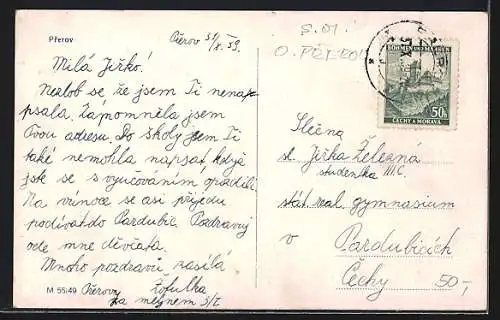 Přerov
Přerov 31/X. 39.
Milá Jiřko!
Nezlob se že jsem Ti nenap-
psala. Zapomněla jsem
Tvou adresu. Do školy jsem Ti
také nemohla napsat, když
jste se s vyučováním opozdili.
Na vánoce se asi přijedu
podívat do Pardubic. Pozdravuj
ode mne děvčata.
Mnoho pozdravů zasílá
Žofulka
Přerov
za mlýnem
M 55/49
BÖHMEN UND MÄHREN
50h
ČECHY A MORAVA
Slečna
sl. Jiřka Železná
studentka III.C
stát. real. gymnasium
v
Pardubicích
Čechy
50,-